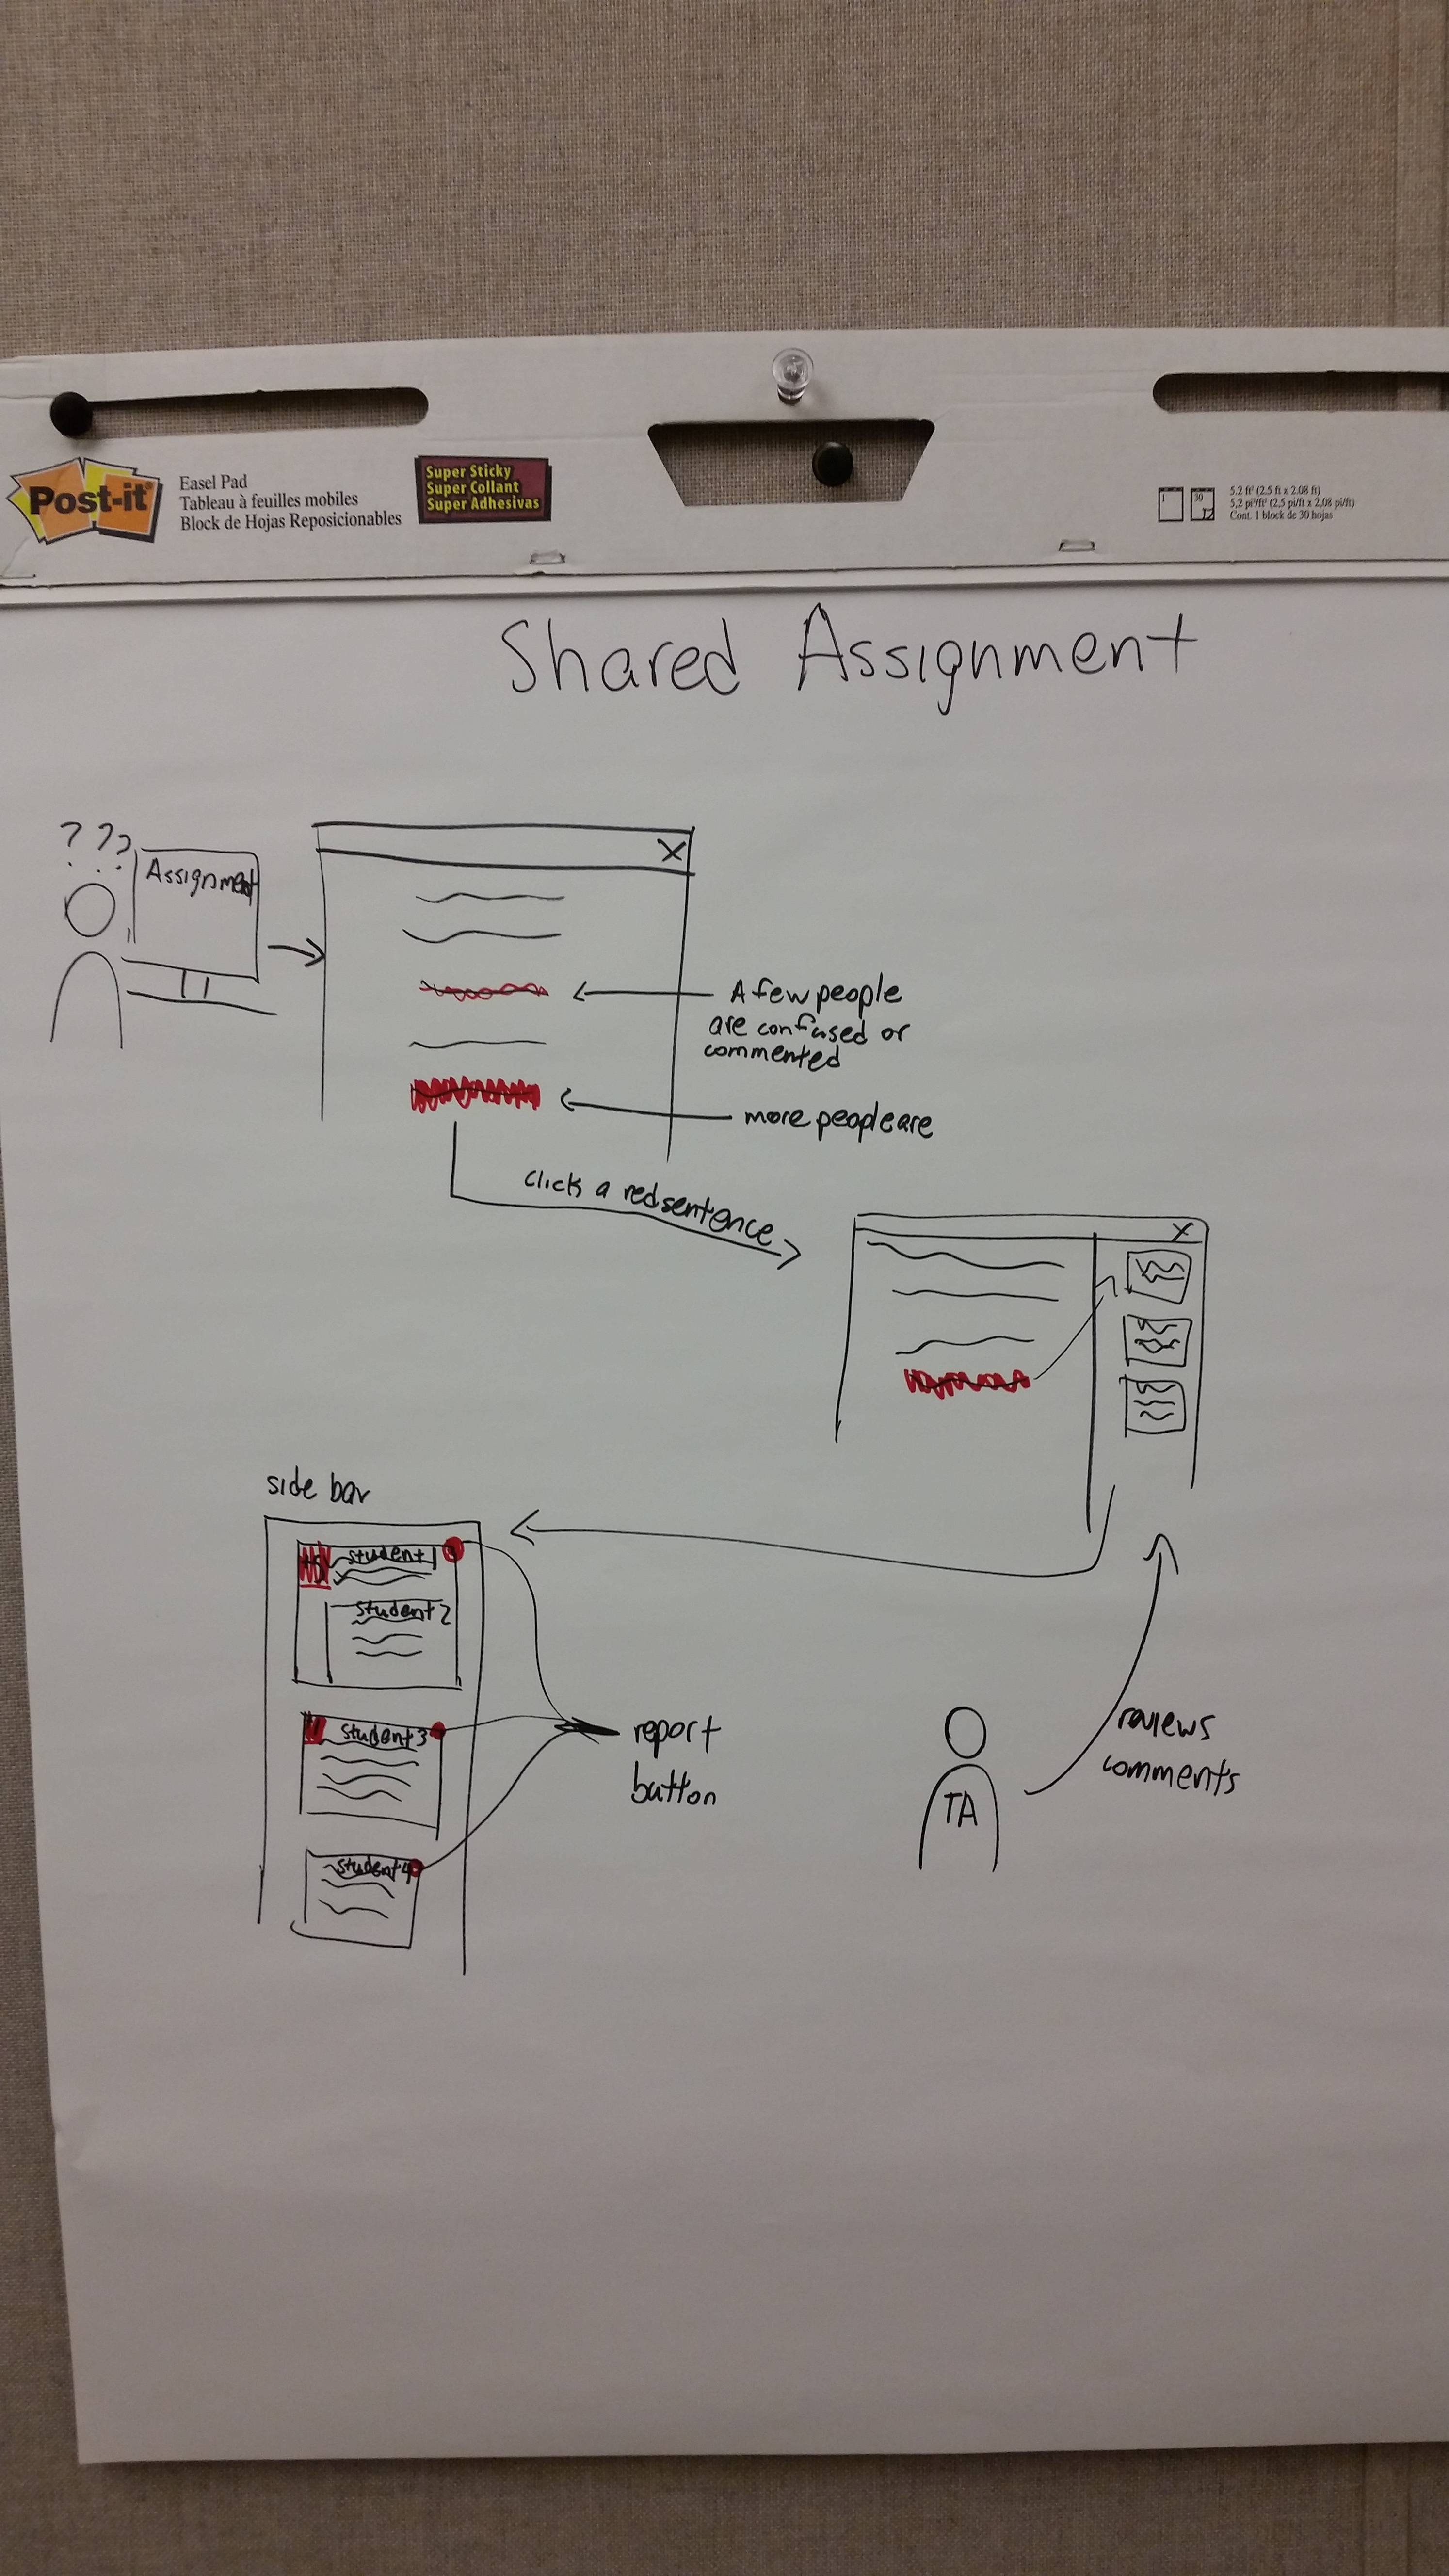 Post-it®
Easel Pad
Tableau à feuilles mobiles
Block de Hojas Reposicionables
Super Sticky
Super Collant
Super Adhesivas
1
30
5.2 ft² (2.5 ft x 2.08 ft)
5,2 pi²/ft² (2,5 pi/ft x 2,08 pi/ft)
Cont. 1 block de 30 hojas
Shared Assignment
? ? ?
Assignment
X
A few people
are confused or
commented
more people are
click a red sentence
X
side bar
student 1
student 2
student 3
student 4
report
button
TA
reviews
comments